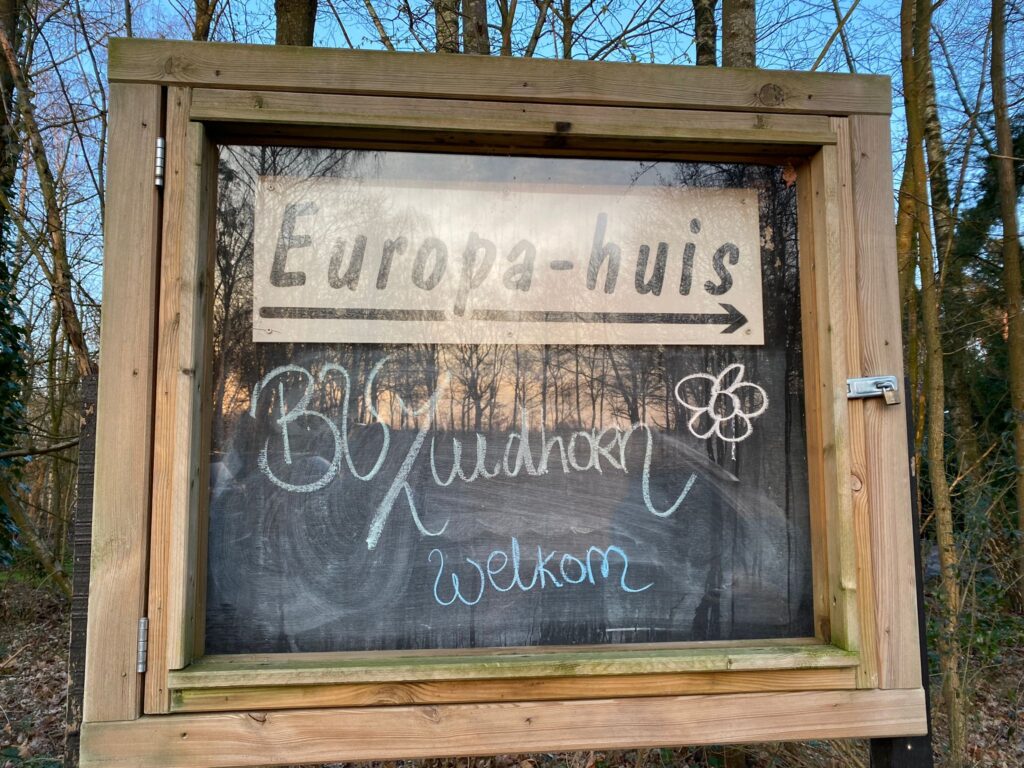 Europa-huis
BV Zuidhorn
welkom